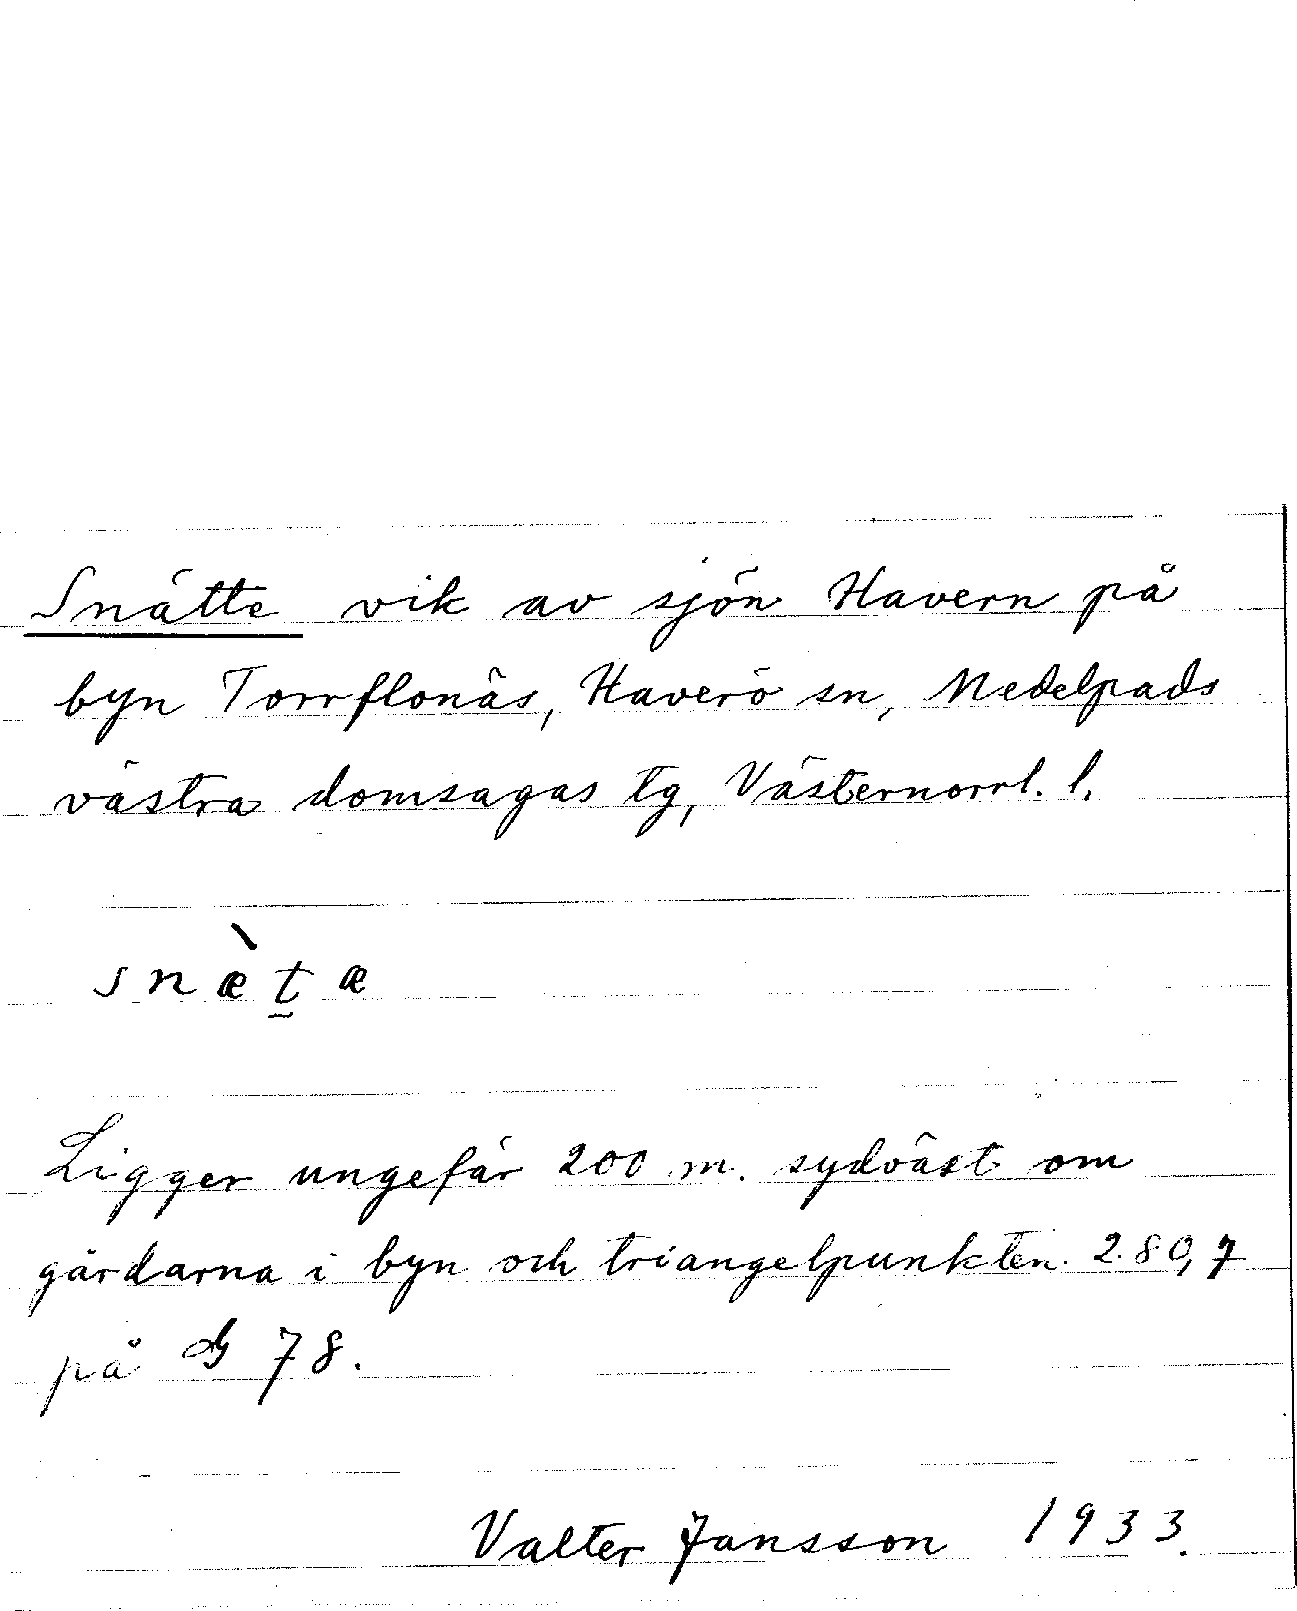 Snätte vik av sjön Havern på
byn Torrflonäs, Haverö sn, Medelpads
västra domsagas tg, Västernorrl. l.
snæ̀t̲æ
Ligger ungefär 200 m. sydväst om
gårdarna i byn och triangelpunkten 280,7
på G 78.
Valter Jansson 1933.